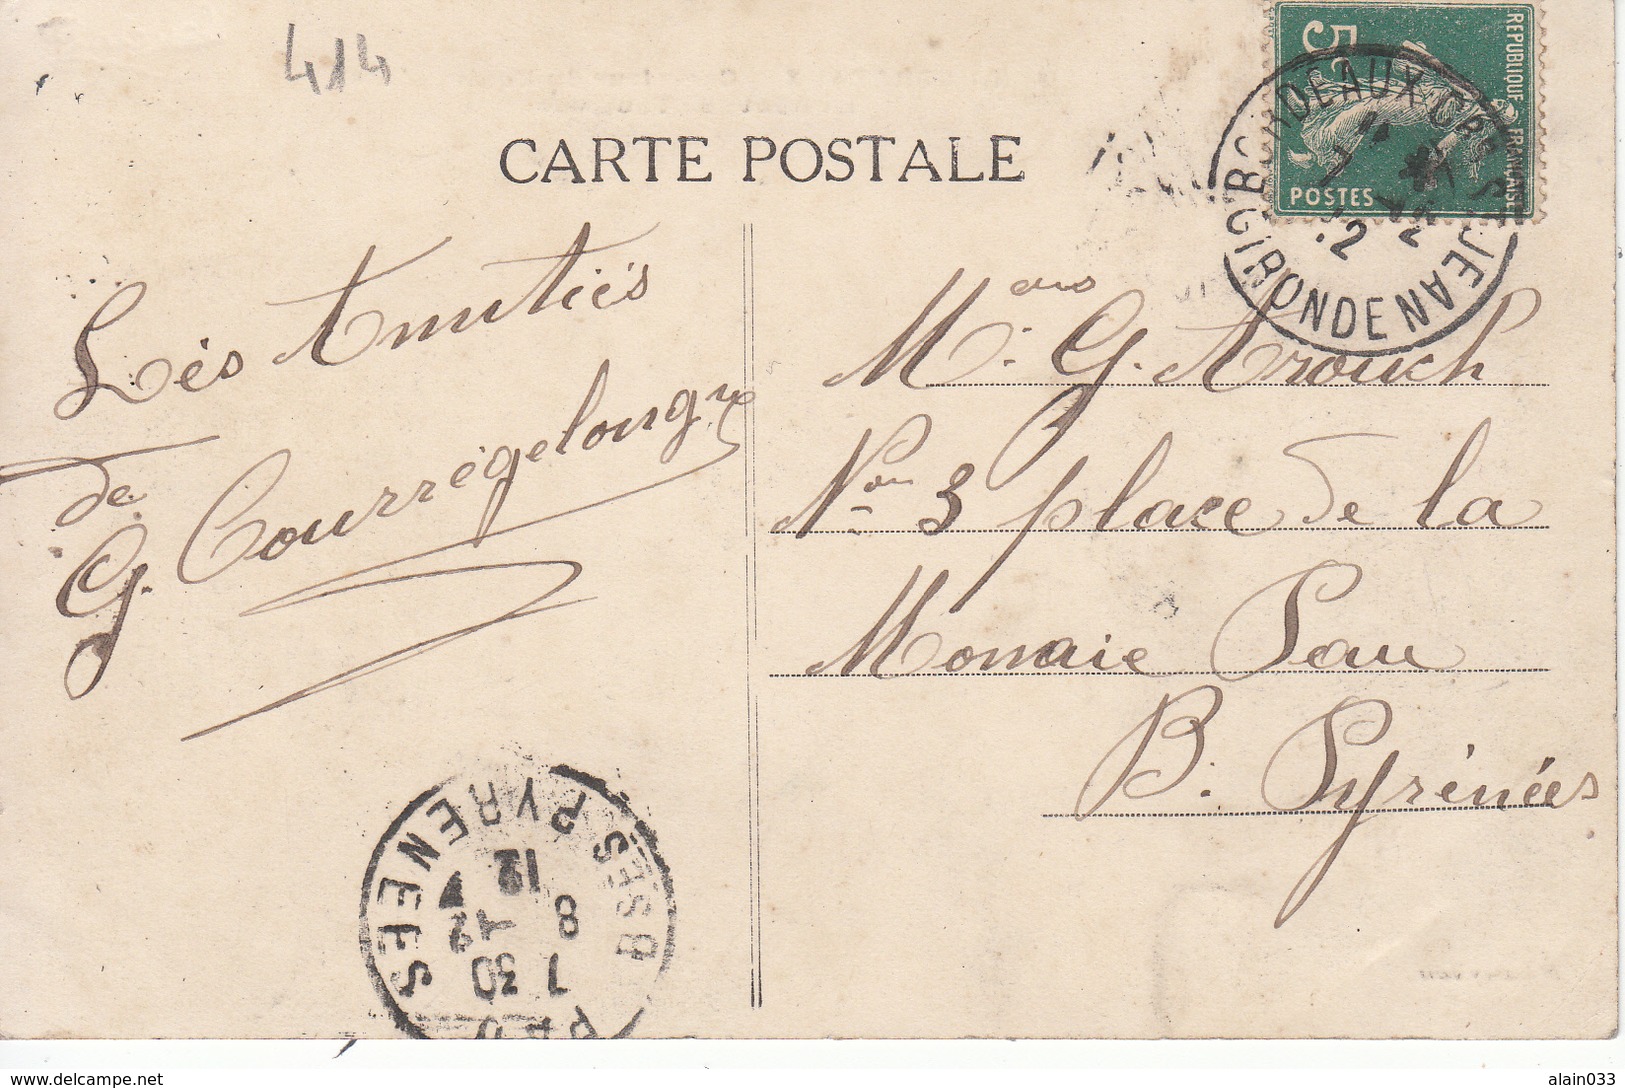 414
CARTE POSTALE
5c
REPUBLIQUE FRANÇAISE
POSTES
BORDEAUX GARE ST JEAN
GIRONDE
Lés Amitiés
de
G. Courrégelongue
M. G. Arouch
No 3 place de la
Monnaie Pau
B. Pyrénées
PAU
BSES PYRENEES
7 30
8 12
12
delcampe.net
alain033